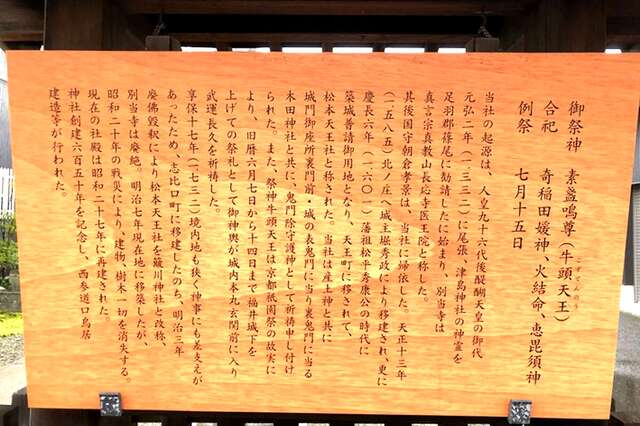 御祭神 素盞嗚尊(牛頭天王)
ごずてんのう
合祀 奇稲田媛神、火結命、恵毘須神
例祭 七月十五日
当社の起源は、人皇九十六代後醍醐天皇の御代
元弘二年(一三三二)に尾張、津島神社の神霊を
足羽郡篠尾に勧請したに始まり、別当寺は
真言宗真教山長応寺医王院と称した。
其後国守朝倉孝景は、当社に帰依した。天正十三年
(一五八五)北ノ庄へ城主堀秀政により移建され、更に
慶長六年(一六〇一)藩祖松平秀康公の時代に
築城普請御用地となり、天王町に移されて、
松本天王社と称された。当社は産土神と共に
城門御座所裏門前・城の表鬼門に当り裏鬼門に当る
木田神社と共に、鬼門除守護神として祈祷申し付け
られた。また、祭神牛頭天王は京都祇園祭の故実に
より、旧暦六月七日から十四日まで福井城下を
上げての祭礼として御神輿が城内本丸玄関前に入り
武運長久を祈祷した。
享保十七年(一七三二)境内地も狭く神事にも差支えが
あったため、志比口町に移建したのち、明治三年
廃佛毀釈により松本天王社を簸川神社と改称、
別当寺は廃絶。明治七年現在地に移築したが、
昭和二十年の戦災により、建物、樹木一切を消失する。
現在の社殿は昭和二十七年に再建された。
神社創建六百五十年を記念し、西参道口鳥居
建造等が行われた。